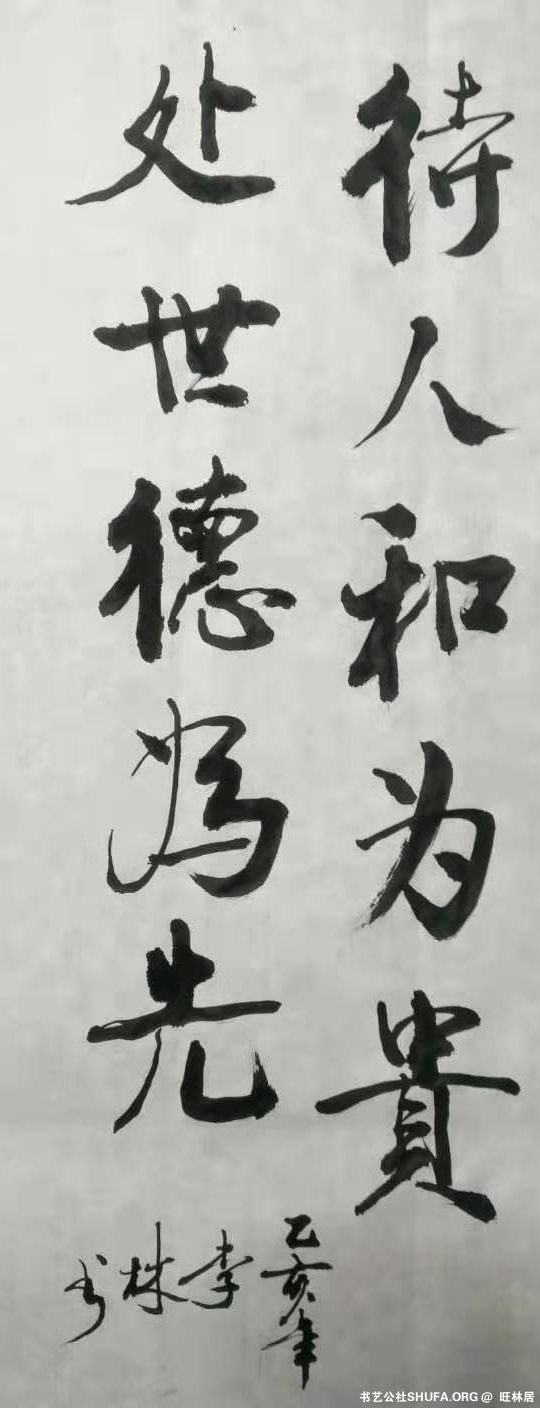 待人和为貴
处世德為先
乙亥年
李
株
书
书艺公社SHUFA.ORG @ 旺林居